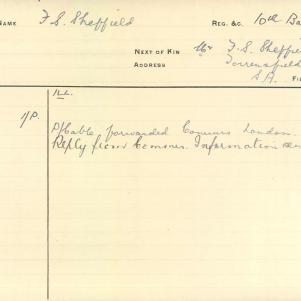 NAME F. S. Sheffield REG. &C. 10th Ba
NEXT OF KIN Mr F. S. Sheffie
ADDRESS Torrensfield
S.A. F
1/P. P/Cable forwarded Commrs London.
Reply from Commrs. Information